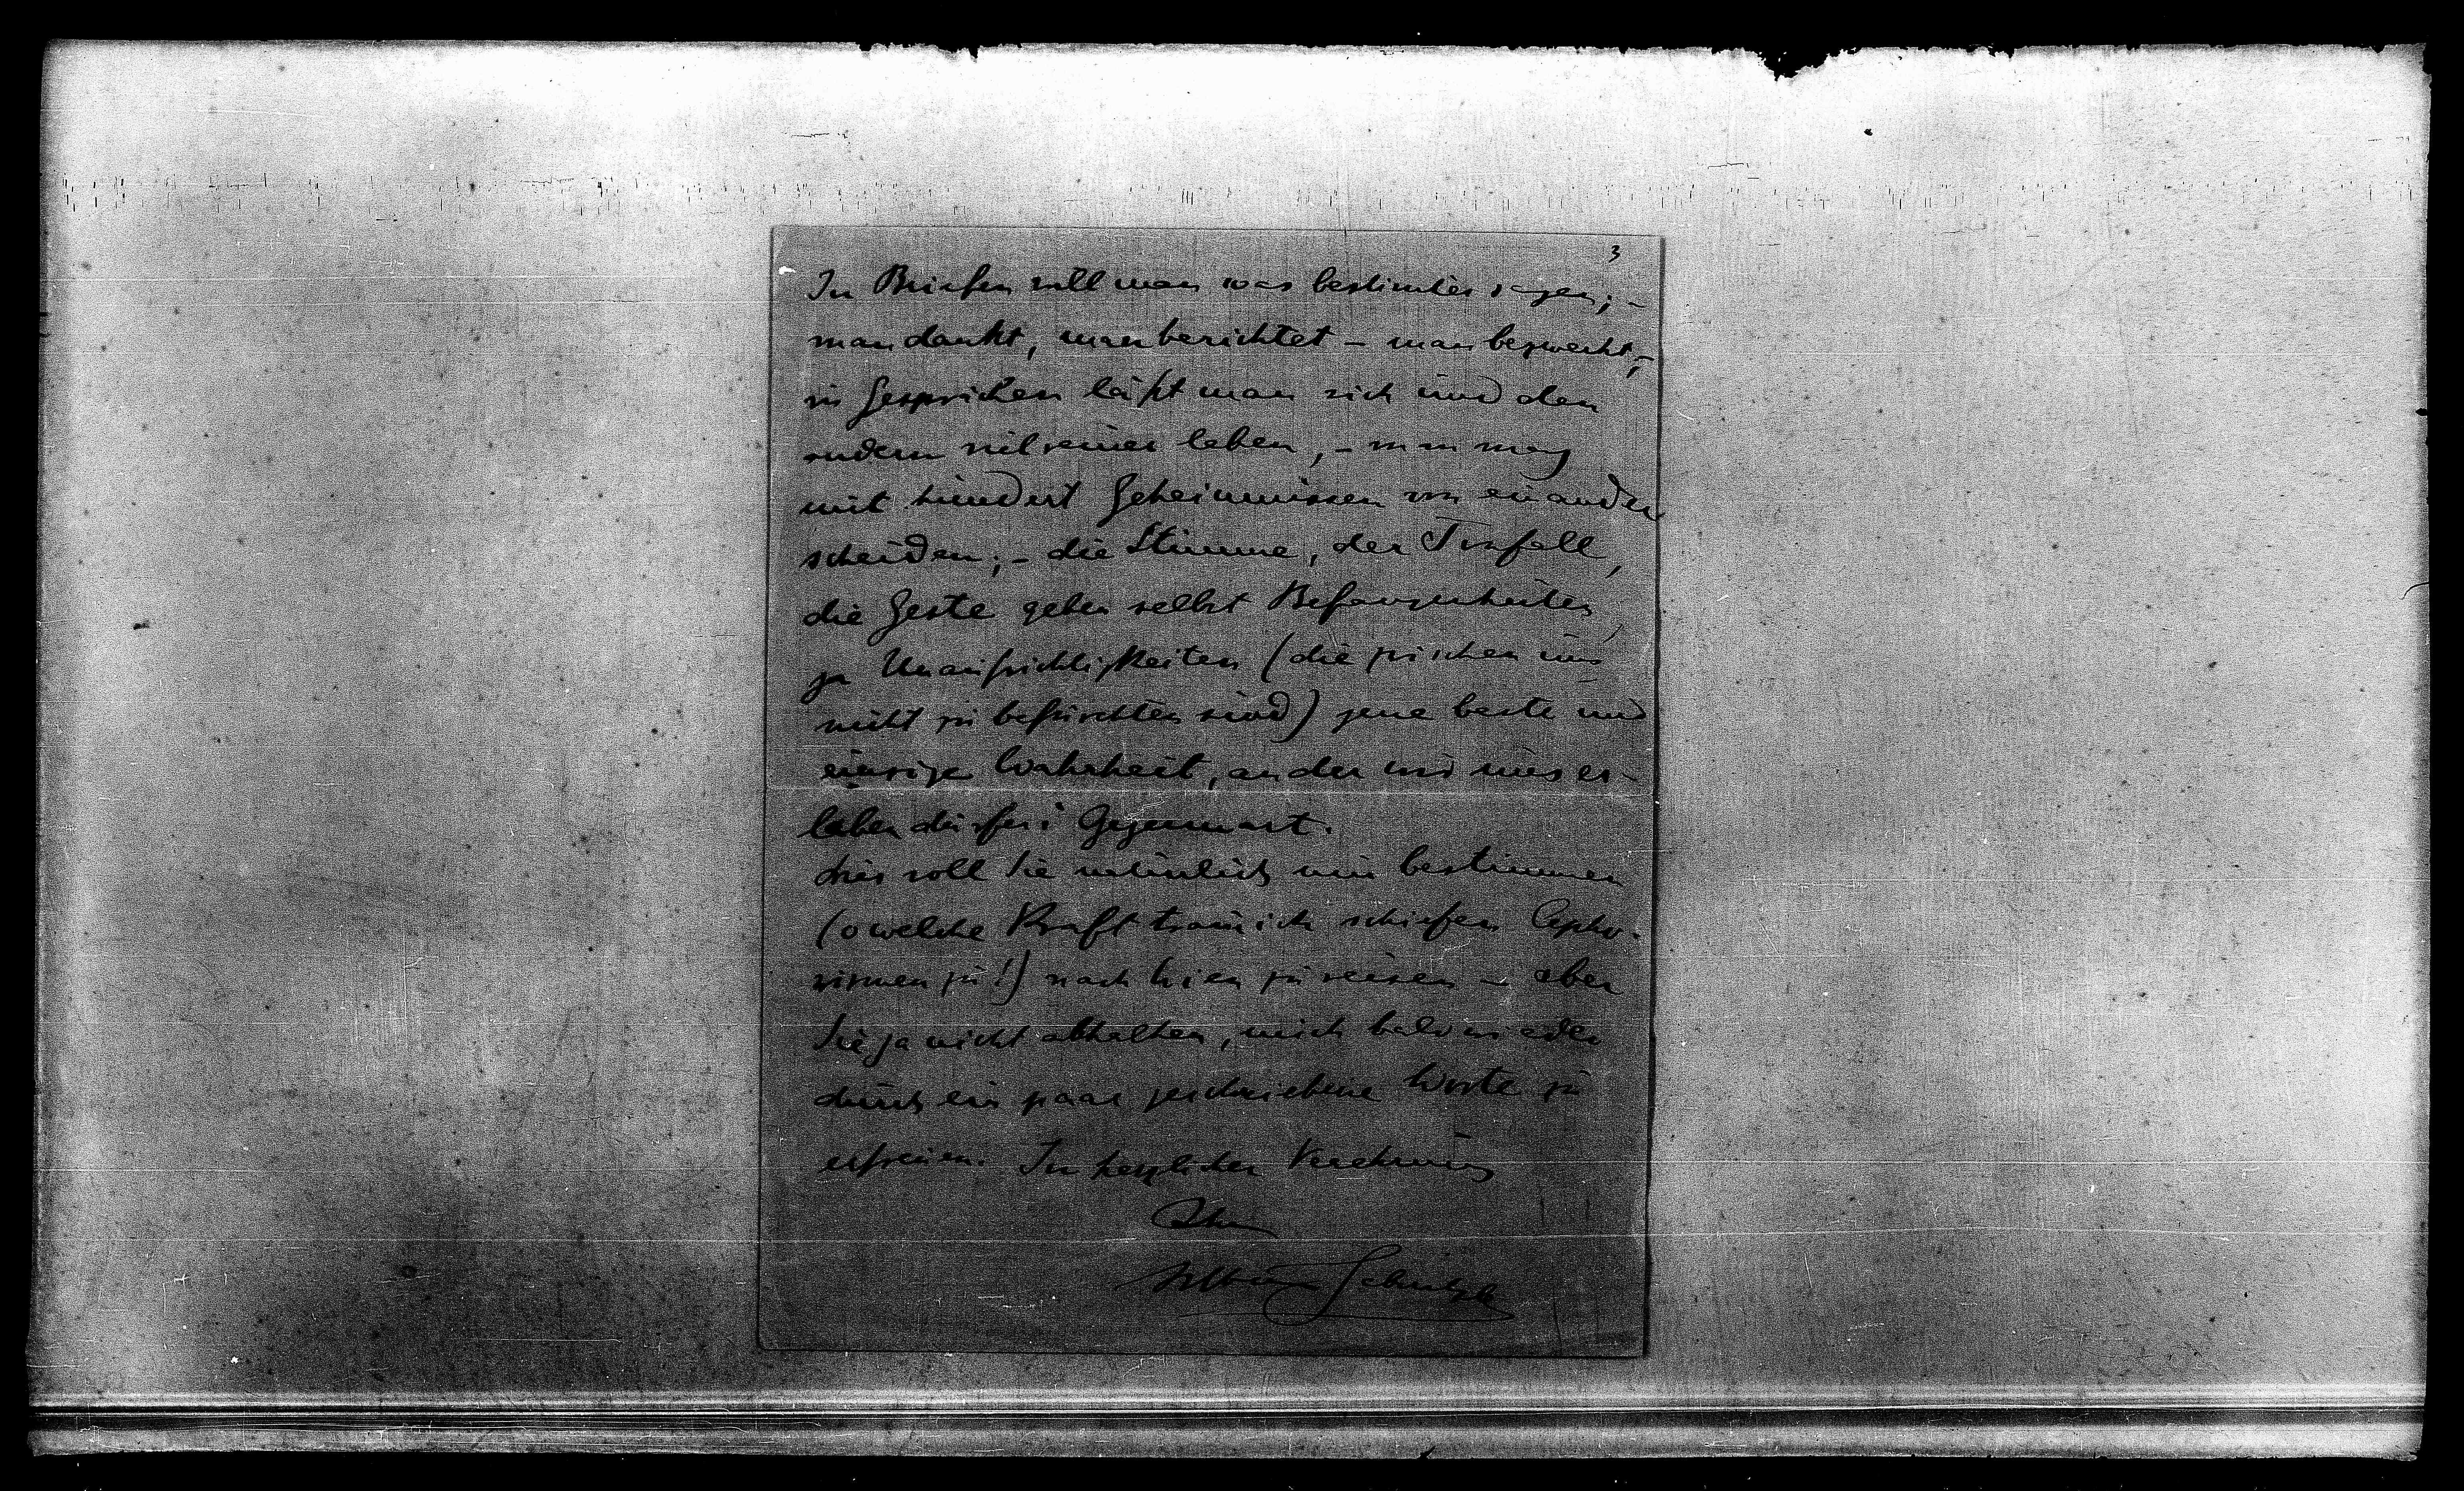 3
In Briefen soll man was bestimtes sagen; –
man dankt, man berichtet – man bezweckt, –
in Gesprächen läßt man sich und den
andern viel reiner leben, – man mag
mit hundert Geheimnissen von einander
scheiden; – die Stimme, der Tonfall,
die Geste geben selbst Befangenheiten,
ja Unaufrichtigkeiten (die zwischen uns
nicht zu befürchten sind) jene beste und
einzige Wahrheit, an der wir uns er-
leben dürfen: Gegenwart.
Dies soll Sie natürlich nun bestimmen
(o welche Kraft trau ich schiefen Apho-
rismen zu!) nach Wien zu reisen – aber
Sie ja nicht abhalten, mich bald wieder
durch ein paar geschriebene Worte zu
erfreuen. In herzlicher Verehrung
Ihr
Arthur Schnitzler